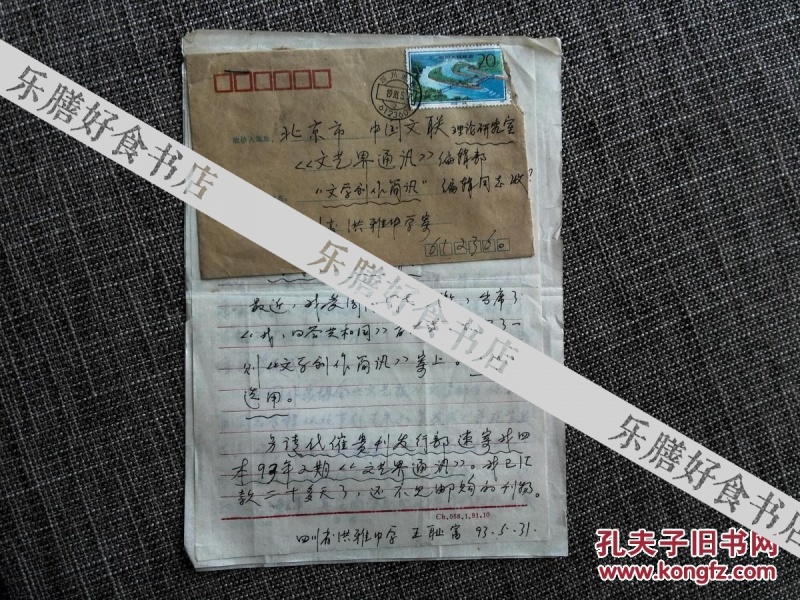 20
收信人地址:
北京市 中国文联 理论研究室
《文艺界通讯》编辑部
“文学创作简讯” 编辑同志收
洪雅中学寄
612360
最近,我受
《我,回答共和国》
则《文学创作简讯》寄上。
选用。
另请代催贵刊发行部速寄我四
本93年2期《文艺界通讯》。我已汇
款二十多天了,还不见邮购的刊物。
Ch.088.1.91.10
四川省洪雅中学 王耻富 93.5.31.
乐膳好食书店
乐膳好食书店
乐膳好食书店
孔夫子旧书网
www.kongfz.com